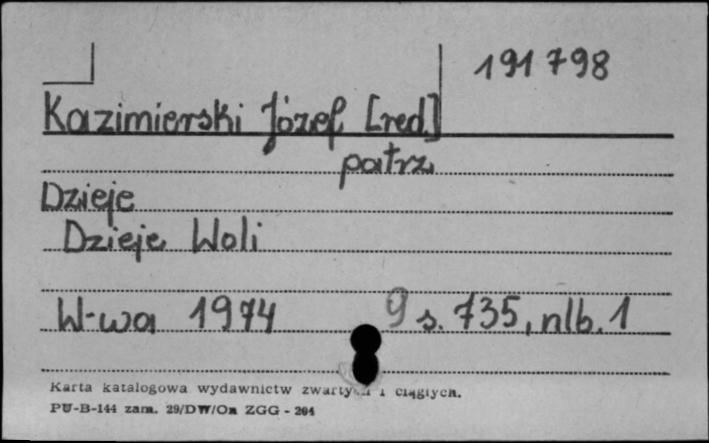 191798
Kazimierski Józef [red.]
patrz
Dzieje
Dzieje Woli
W-wa 1974 9 s. 735, nlb. 1
Karta katalogowa wydawnictw zwartych i ciągłych.
PU-B-144 zam. 29/DW/On ZGG - 204